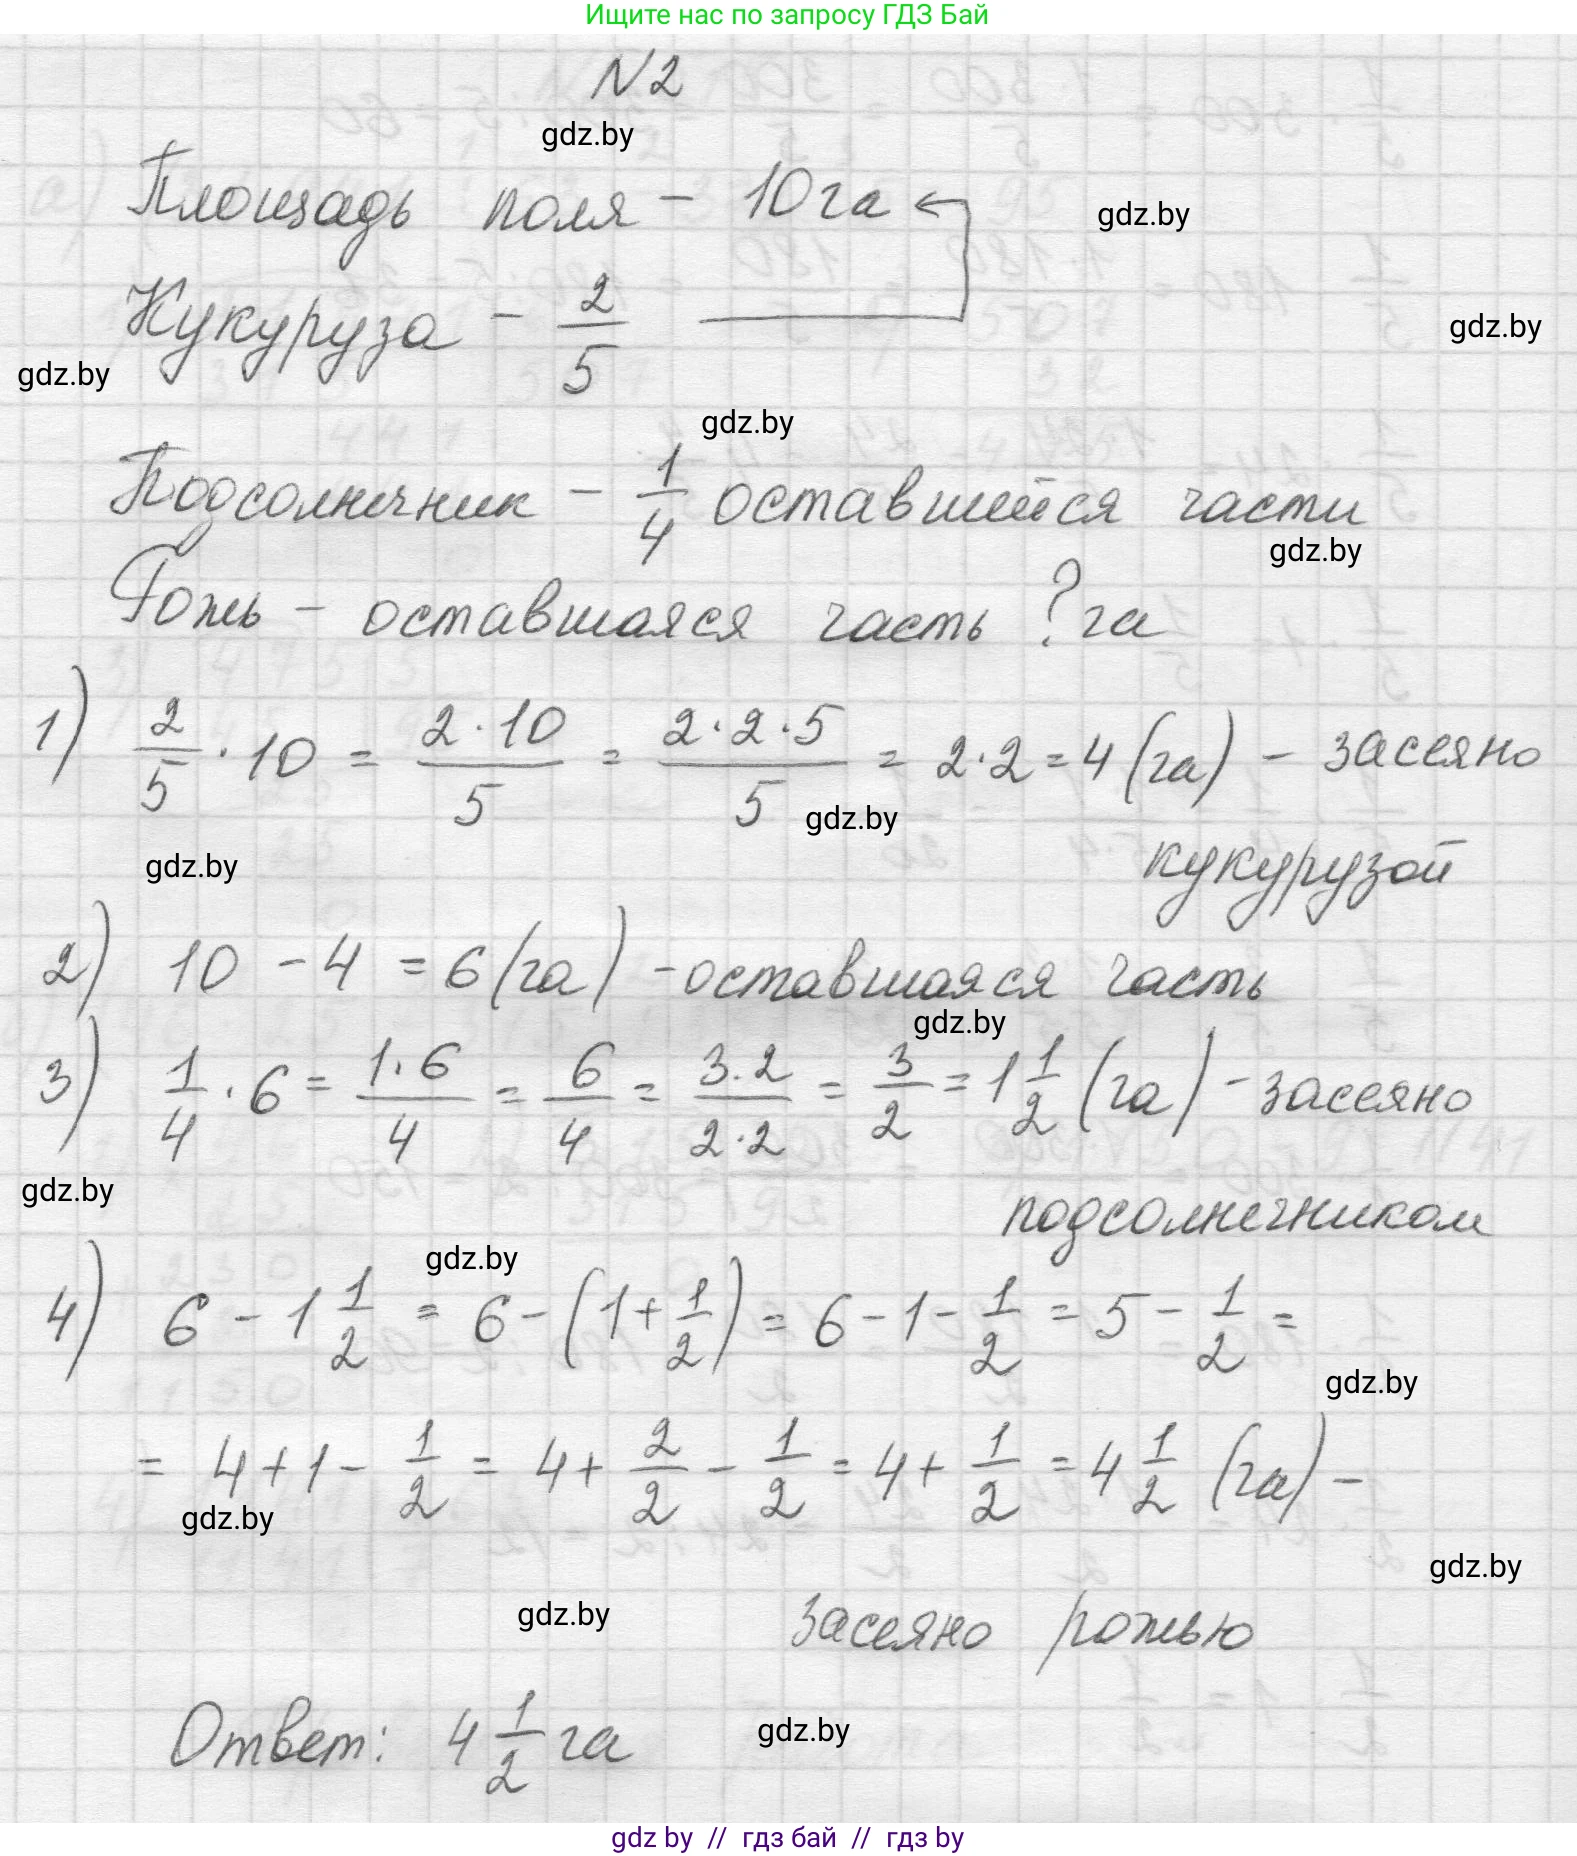 Ищите нас по запросу ГДЗ Бай
N2
gdz.by
Площадь поля - 10 га
gdz.by
Кукуруза - 2/5
gdz.by
gdz.by
gdz.by
Подсолнечник - 1/4 оставшейся части
gdz.by
Рожь - оставшаяся часть ? га
1) 2/5 · 10 = 2·10/5 = 2·2·5/5 = 2·2 = 4 (га) - засеяно
gdz.by
кукурузой
gdz.by
2) 10 - 4 = 6 (га) - оставшаяся часть
gdz.by
3) 1/4 · 6 = 1·6/4 = 6/4 = 3·2/2·2 = 3/2 = 1 1/2 (га) - засеяно
gdz.by
подсолнечником
gdz.by
4) 6 - 1 1/2 = 6 - (1 + 1/2) = 6 - 1 - 1/2 = 5 - 1/2 =
gdz.by
= 4 + 1 - 1/2 = 4 + 2/2 - 1/2 = 4 + 1/2 = 4 1/2 (га) -
gdz.by
gdz.by
gdz.by
засеяно рожью
Ответ: 4 1/2 га
gdz.by
gdz by // гдз бай // гдз by